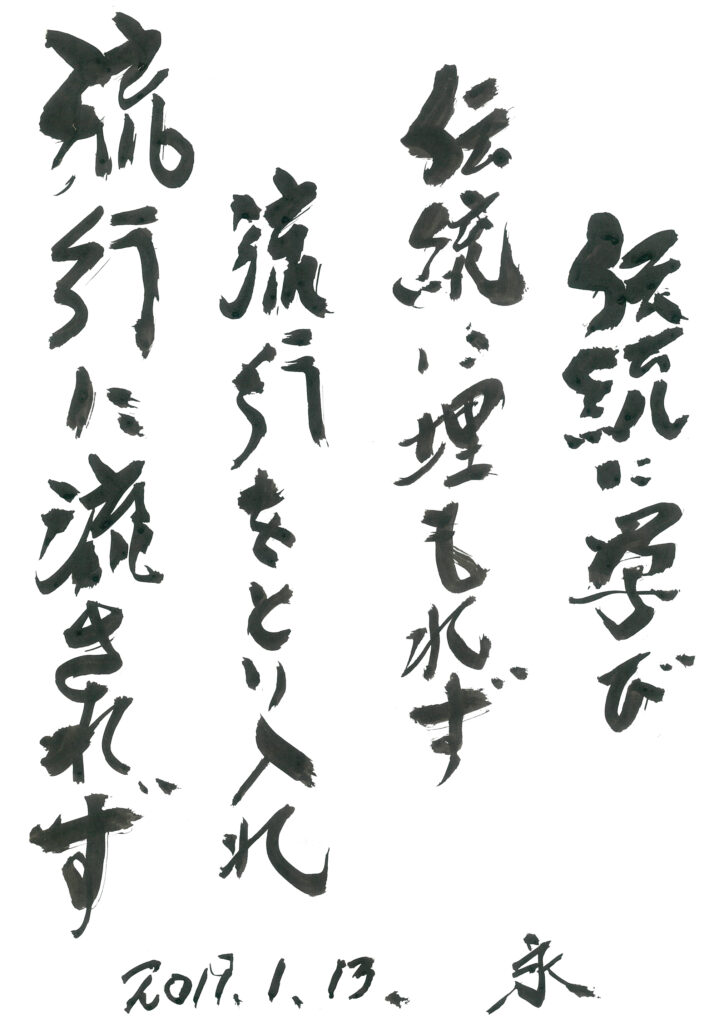 伝統に学び
伝統に埋もれず
流行をとり入れ
流行に流されず
2019.1.13. 永